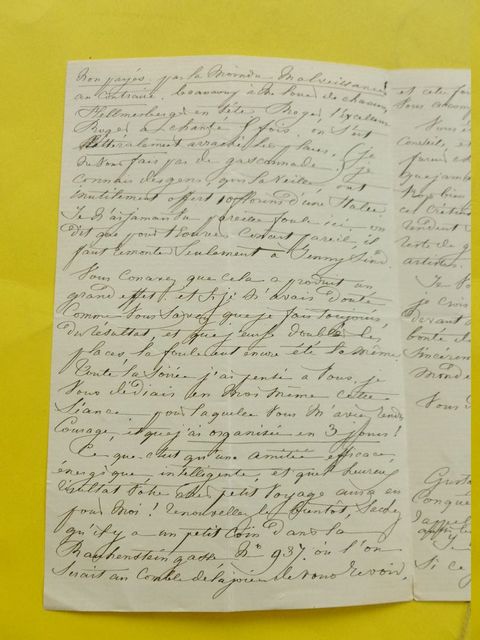 Non payés. par la moindre malveillance
au contraire. beaucoup à la joue de chacun,
Hellmesberger en tête Roger, l'excellent
Roger a chanté 5 fois. on s'est
littéralement arraché les places. (je
ne vous fais pas de gasconnade!) je
connais des gens, qui la veille, ont
inutilement offert 100 florins d'une Stalle.
Je n'ai jamais vu pareille foule ici, on
dit que pour trouver concert pareil, il
faut remonter seulement à Jenny Lind
Vous concevez que cela a produit un
grand effet! et si je n'avais douté
comme vous savez que je fais toujours,
du résultat, et que j'eusse doublé les
places, la foule eut encore été la même.
Toute la soirée j'ai pensé à vous, je
vous dédiais en moi même cette
séance pour laquelle vous m'aviez rendu
courage, et que j'ai organisée en 3 jours!
Ce que c'est qu'une amitié efficace,
énergique intelligente, et quel heureux
résultat votre petit voyage aura eu
pour moi! renouvellez le bientôt, sachez
qu'il y a un petit coin dans la
Rauhensteingasse No 937. où l'on
serait au comble de la joie de vous revoir.
et cette fo
vous accomp
Vous
conseils, e
rendent
reste de q
artistes.
Je vo
je crois
devant
bonté de
sincérem
monde
Vous d
Conqué
rappel
Si ce